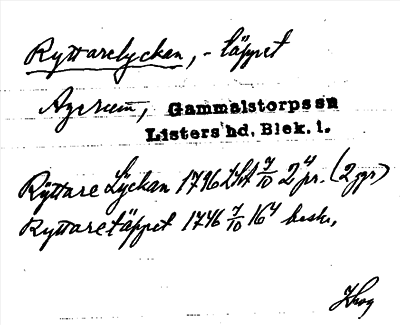 Ryttarelyckan, -täppet
Agerum, Gammalstorps sn
Listers hd. Blek. l.
Ryttare Lyckan 1796 LSkt 7/10 2⁴ pr. (2 ggr)
Ryttaretäppet 1746 7/10 16⁴ beskr,